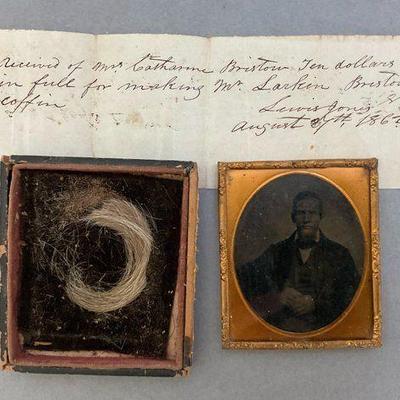 Received of Mrs Catharine Bristow Ten dollars
in full for making Mr Larkin Bristow
coffin Lewis Jones
August 9th 186